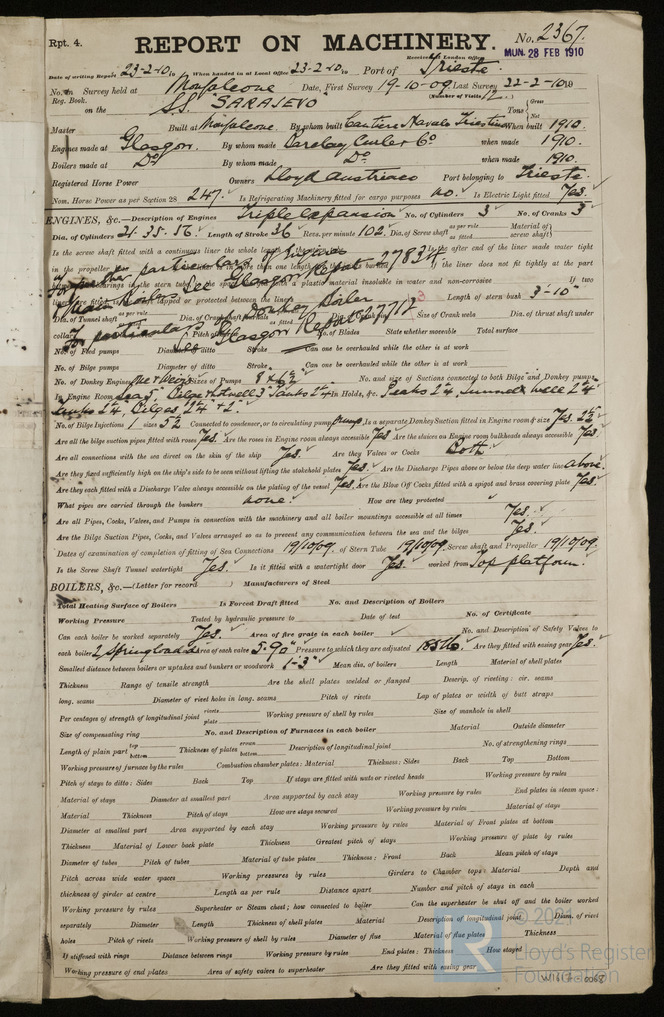 Rpt. 4.
REPORT ON MACHINERY.
No. 2367.
Received at London Office MON. 28 FEB 1910
Date of writing Report 23-2-10 When handed in at Local Office 23-2-10 Port of Trieste
No. in Survey held at Monfalcone Date, First Survey 19-10-09 Last Survey 22-2-10 19
Reg. Book. (Number of Visits 12)
on the S.S. "SARAJEVO" Tons Gross Net
Master Built at Monfalcone By whom built Cantiere Navale Triestino When built 1910.
Engines made at Glasgow. By whom made Barclay Curle & Co when made 1910.
Boilers made at Do By whom made Do when made 1910.
Registered Horse Power Owners Lloyd Austriaco Port belonging to Trieste
Nom. Horse Power as per Section 28 247. Is Refrigerating Machinery fitted for cargo purposes no. Is Electric Light fitted Yes.
ENGINES, &c.—Description of Engines Triple expansion No. of Cylinders 3 No. of Cranks 3
Dia. of Cylinders 21. 35. 56. Length of Stroke 36 Revs. per minute 102. Dia. of Screw shaft as per rule as fitted Material of screw shaft
Is the screw shaft fitted with a continuous liner the whole length Is the after end of the liner made water tight
in the propeller the liner does not fit tightly at the part
For further particulars of Engines
& Main Boilers See Glasgow Report 27834.
with a plastic material insoluble in water and non-corrosive If two
lapped or protected between the liners Length of stern bush 3'-10"
Dia. of Tunnel shaft as per rule as fitted Dia. of Crank shaft Size of Crank webs Dia. of thrust shaft under
For particulars of Donkey Boiler
See Glasgow Report 27717
collars No. of Blades State whether moveable Total surface
No. of Feed pumps Diameter of ditto Stroke Can one be overhauled while the other is at work
No. of Bilge pumps Diameter of ditto Stroke Can one be overhauled while the other is at work
No. of Donkey Engines Sizes of Pumps No. and size of Suctions connected to both Bilge and Donkey pumps
In Engine Room In Holds, &c.
No. of Bilge Injections 1 sizes 5 1/2 Connected to condenser, or to circulating pump Pump. Is a separate Donkey Suction fitted in Engine room & size Yes. 2 1/2"
Are all the bilge suction pipes fitted with roses Yes. Are the roses in Engine room always accessible Yes Are the sluices on Engine room bulkheads always accessible Yes.
Are all connections with the sea direct on the skin of the ship Yes. Are they Valves or Cocks Both
Are they fixed sufficiently high on the ship's side to be seen without lifting the stokehold plates Yes. Are the Discharge Pipes above or below the deep water line above.
Are they each fitted with a Discharge Valve always accessible on the plating of the vessel Yes. Are the Blow Off Cocks fitted with a spigot and brass covering plate Yes.
What pipes are carried through the bunkers none. How are they protected
Are all Pipes, Cocks, Valves, and Pumps in connection with the machinery and all boiler mountings accessible at all times Yes.
Are the Bilge Suction Pipes, Cocks, and Valves arranged so as to prevent any communication between the sea and the bilges Yes.
Dates of examination of completion of fitting of Sea Connections 19/10/09. of Stern Tube 19/10/09. Screw shaft and Propeller 19/10/09.
Is the Screw Shaft Tunnel watertight Yes. Is it fitted with a watertight door Yes. worked from Top platform.
BOILERS, &c.—(Letter for record ) Manufacturers of Steel
Total Heating Surface of Boilers Is Forced Draft fitted No. and Description of Boilers
Working Pressure Tested by hydraulic pressure to Date of test No. of Certificate
Can each boiler be worked separately Yes. Area of fire grate in each boiler No. and Description of Safety Valves to
each boiler 2 Spring loaded Area of each valve 5.90" Pressure to which they are adjusted 185 lb. Are they fitted with easing gear Yes.
Smallest distance between boilers or uptakes and bunkers or woodwork 1'-3" Mean dia. of boilers Length Material of shell plates
Thickness Range of tensile strength Are the shell plates welded or flanged Descrip. of riveting: cir. seams
long. seams Diameter of rivet holes in long. seams Pitch of rivets Lap of plates or width of butt straps
Per centages of strength of longitudinal joint rivets plate Working pressure of shell by rules Size of manhole in shell
Size of compensating ring No. and Description of Furnaces in each boiler Material Outside diameter
Length of plain part top bottom Thickness of plates crown bottom Description of longitudinal joint No. of strengthening rings
Working pressure of furnace by the rules Combustion chamber plates: Material Thickness: Sides Back Top Bottom
Pitch of stays to ditto: Sides Back Top If stays are fitted with nuts or riveted heads Working pressure by rules
Material of stays Diameter at smallest part Area supported by each stay Working pressure by rules End plates in steam space:
Material Thickness Pitch of stays How are stays secured Working pressure by rules Material of stays
Diameter at smallest part Area supported by each stay Working pressure by rules Material of Front plates at bottom
Thickness Material of Lower back plate Thickness Greatest pitch of stays Working pressure of plate by rules
Diameter of tubes Pitch of tubes Material of tube plates Thickness: Front Back Mean pitch of stays
Pitch across wide water spaces Working pressures by rules Girders to Chamber tops: Material Depth and
thickness of girder at centre Length as per rule Distance apart Number and pitch of stays in each
Working pressure by rules Superheater or Steam chest; how connected to boiler Can the superheater be shut off and the boiler worked
separately Diameter Length Thickness of shell plates Material Description of longitudinal joint Diam. of rivet
holes Pitch of rivets Working pressure of shell by rules Diameter of flue Material of flue plates Thickness
If stiffened with rings Distance between rings Working pressure by rules End plates: Thickness How stayed
Working pressure of end plates Area of safety valves to superheater Are they fitted with easing gear
© 2021
Lloyd's Register
Foundation
W1617-0068